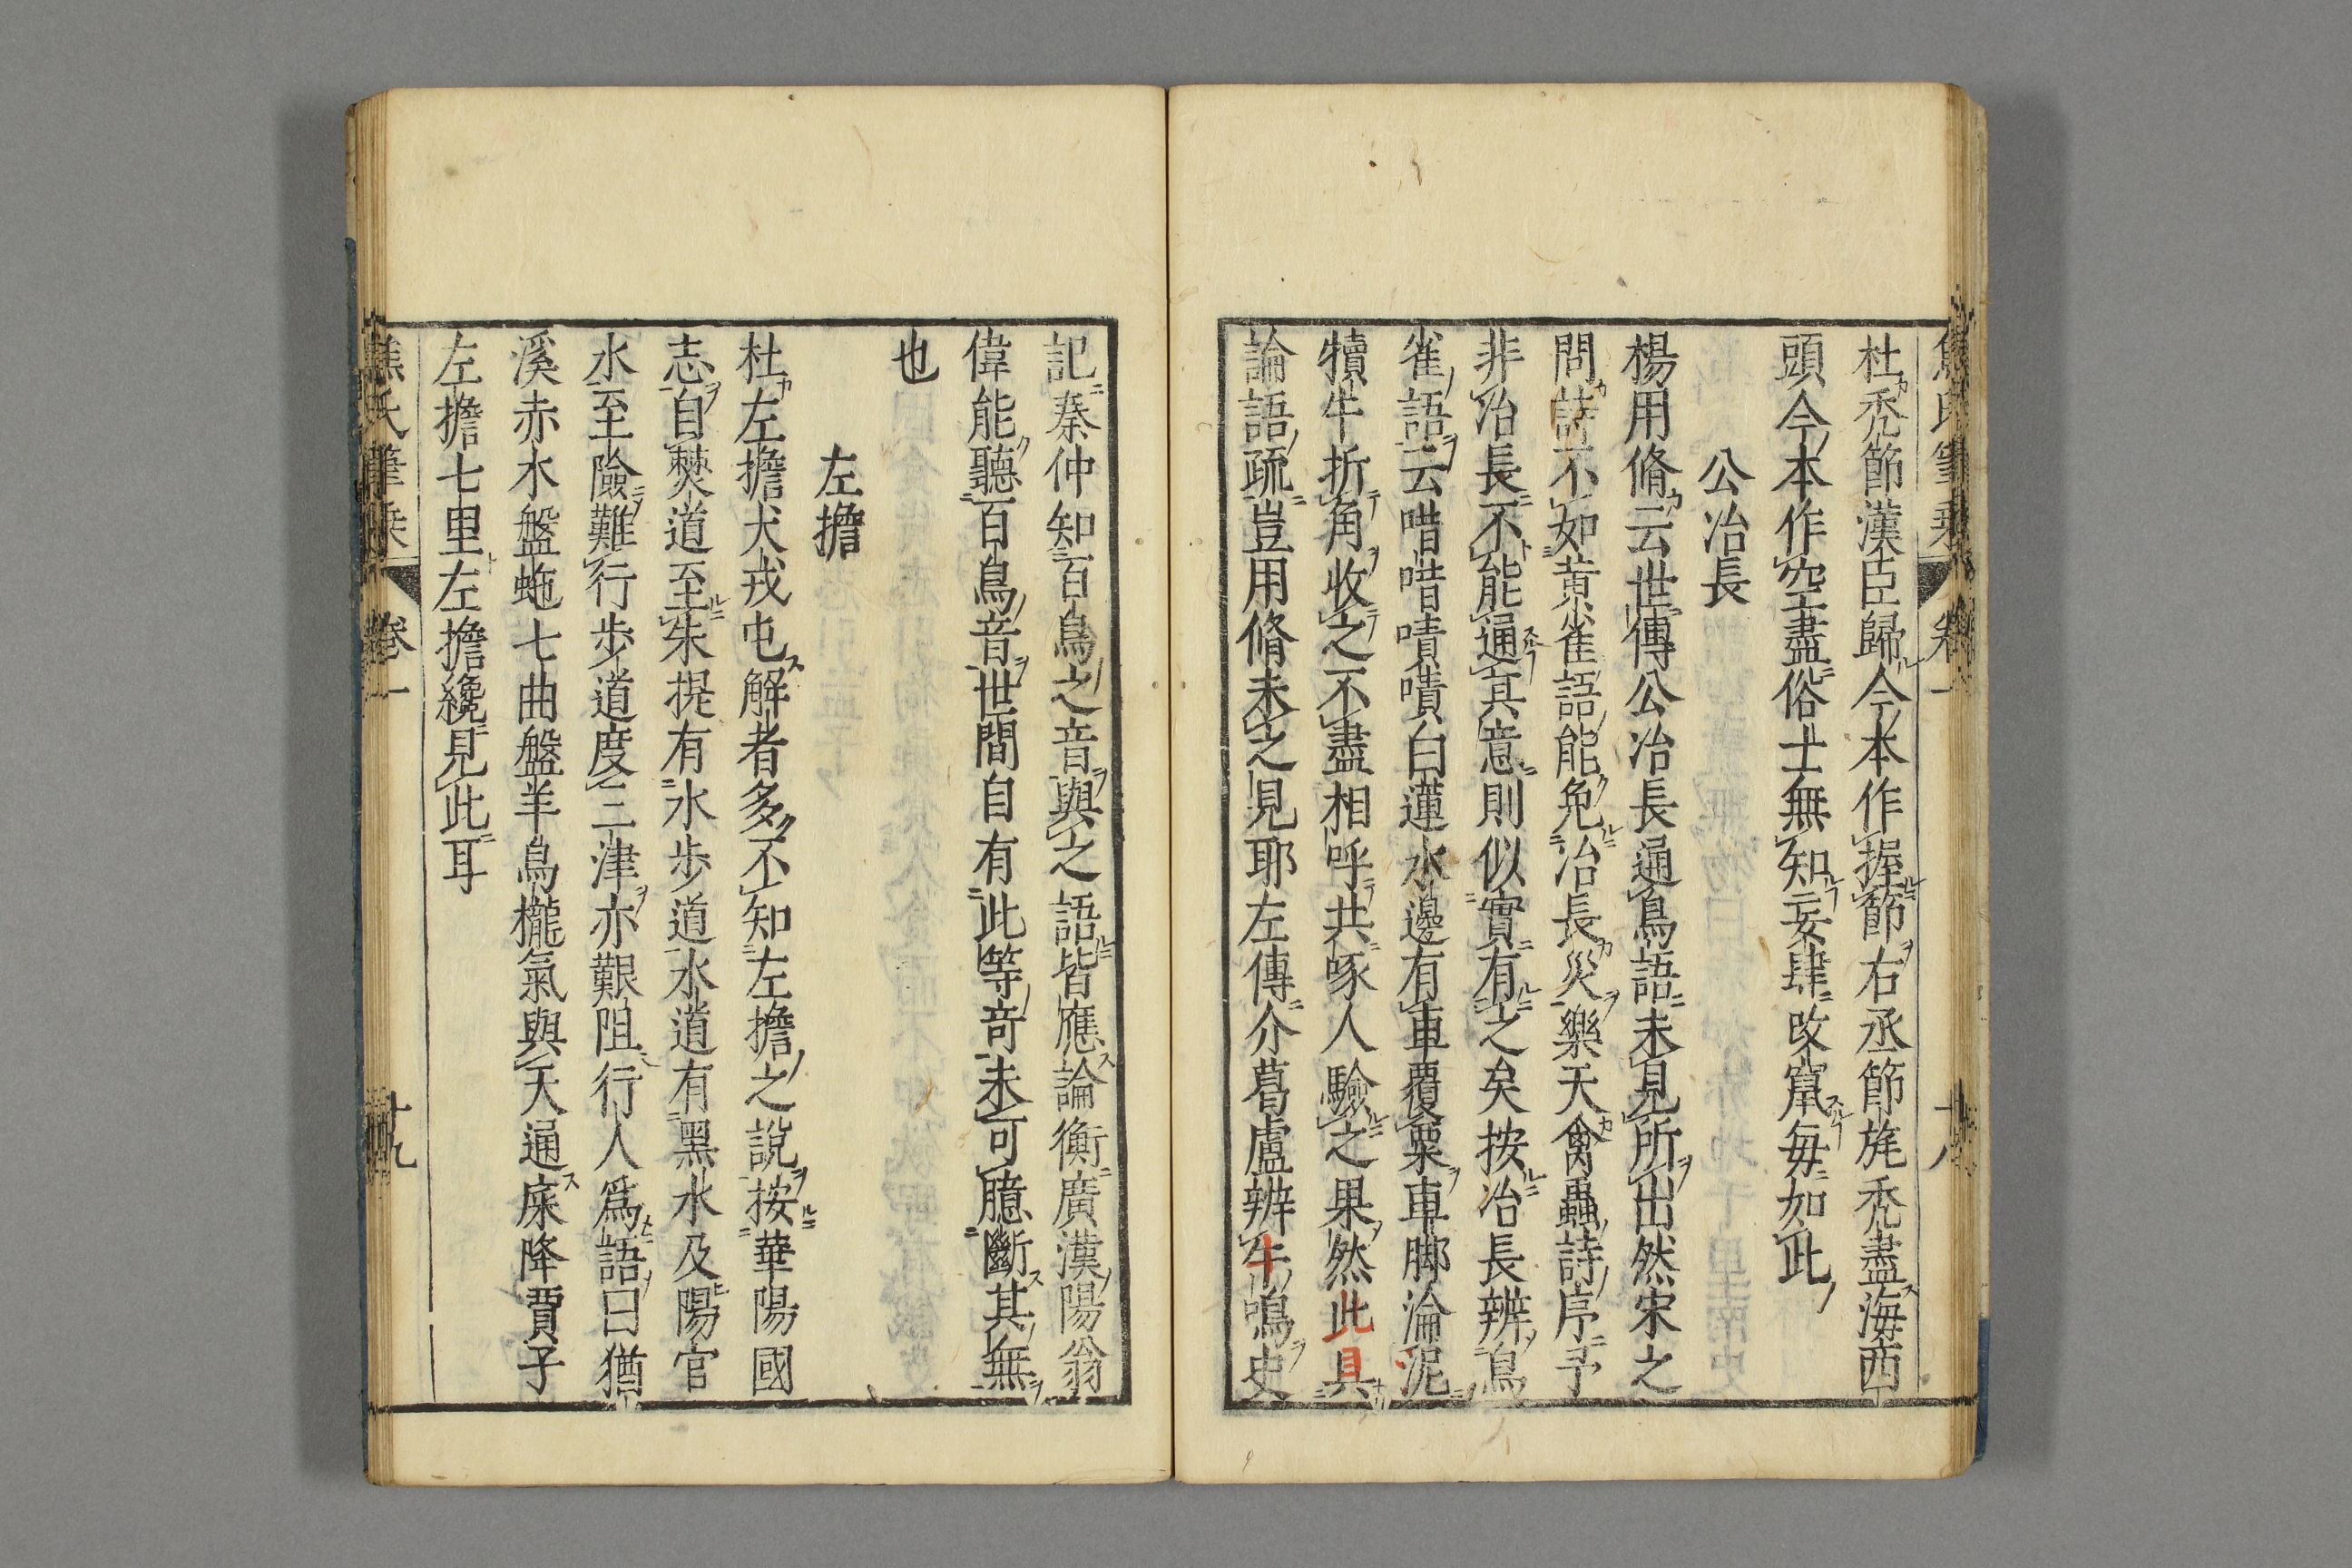 杜禿節漢臣歸今本作握節右丞節旄禿盡海西
頭今本作空盡俗士無知妄肆改竄毎如此
公冶長
楊用脩云世傳公冶長通鳥語未見所出然宋之
問詩不如黄雀語能免冶長災樂天禽蟲詩序予
非冶長不能通其意則似實有之矣按冶長辨鳥
雀語云喈喈嘖嘖白蓮水邊有車覆粟車脚淪泥
犢牛折角收之不盡相呼共啄人驗之果然此具
論語疏豈用脩未之見耶左傳介葛盧辨牛鳴史
記秦仲知百鳥之音與之語皆應論衡廣漢陽翁
偉能聽百鳥音世間自有此等竒未可臆斷其無
也
左擔
杜左擔犬戎屯解者多不知左擔之說按華陽國
志自僰道至朱提有水步道水道有黑水及陽官
水至險難行步道度三津亦艱阻行人爲語曰猶
溪赤水盤蛇七曲盤羊烏櫳氣與天通庲降賈子
左擔七里左擔纔見此耳
焦氏筆乗 卷一 十九